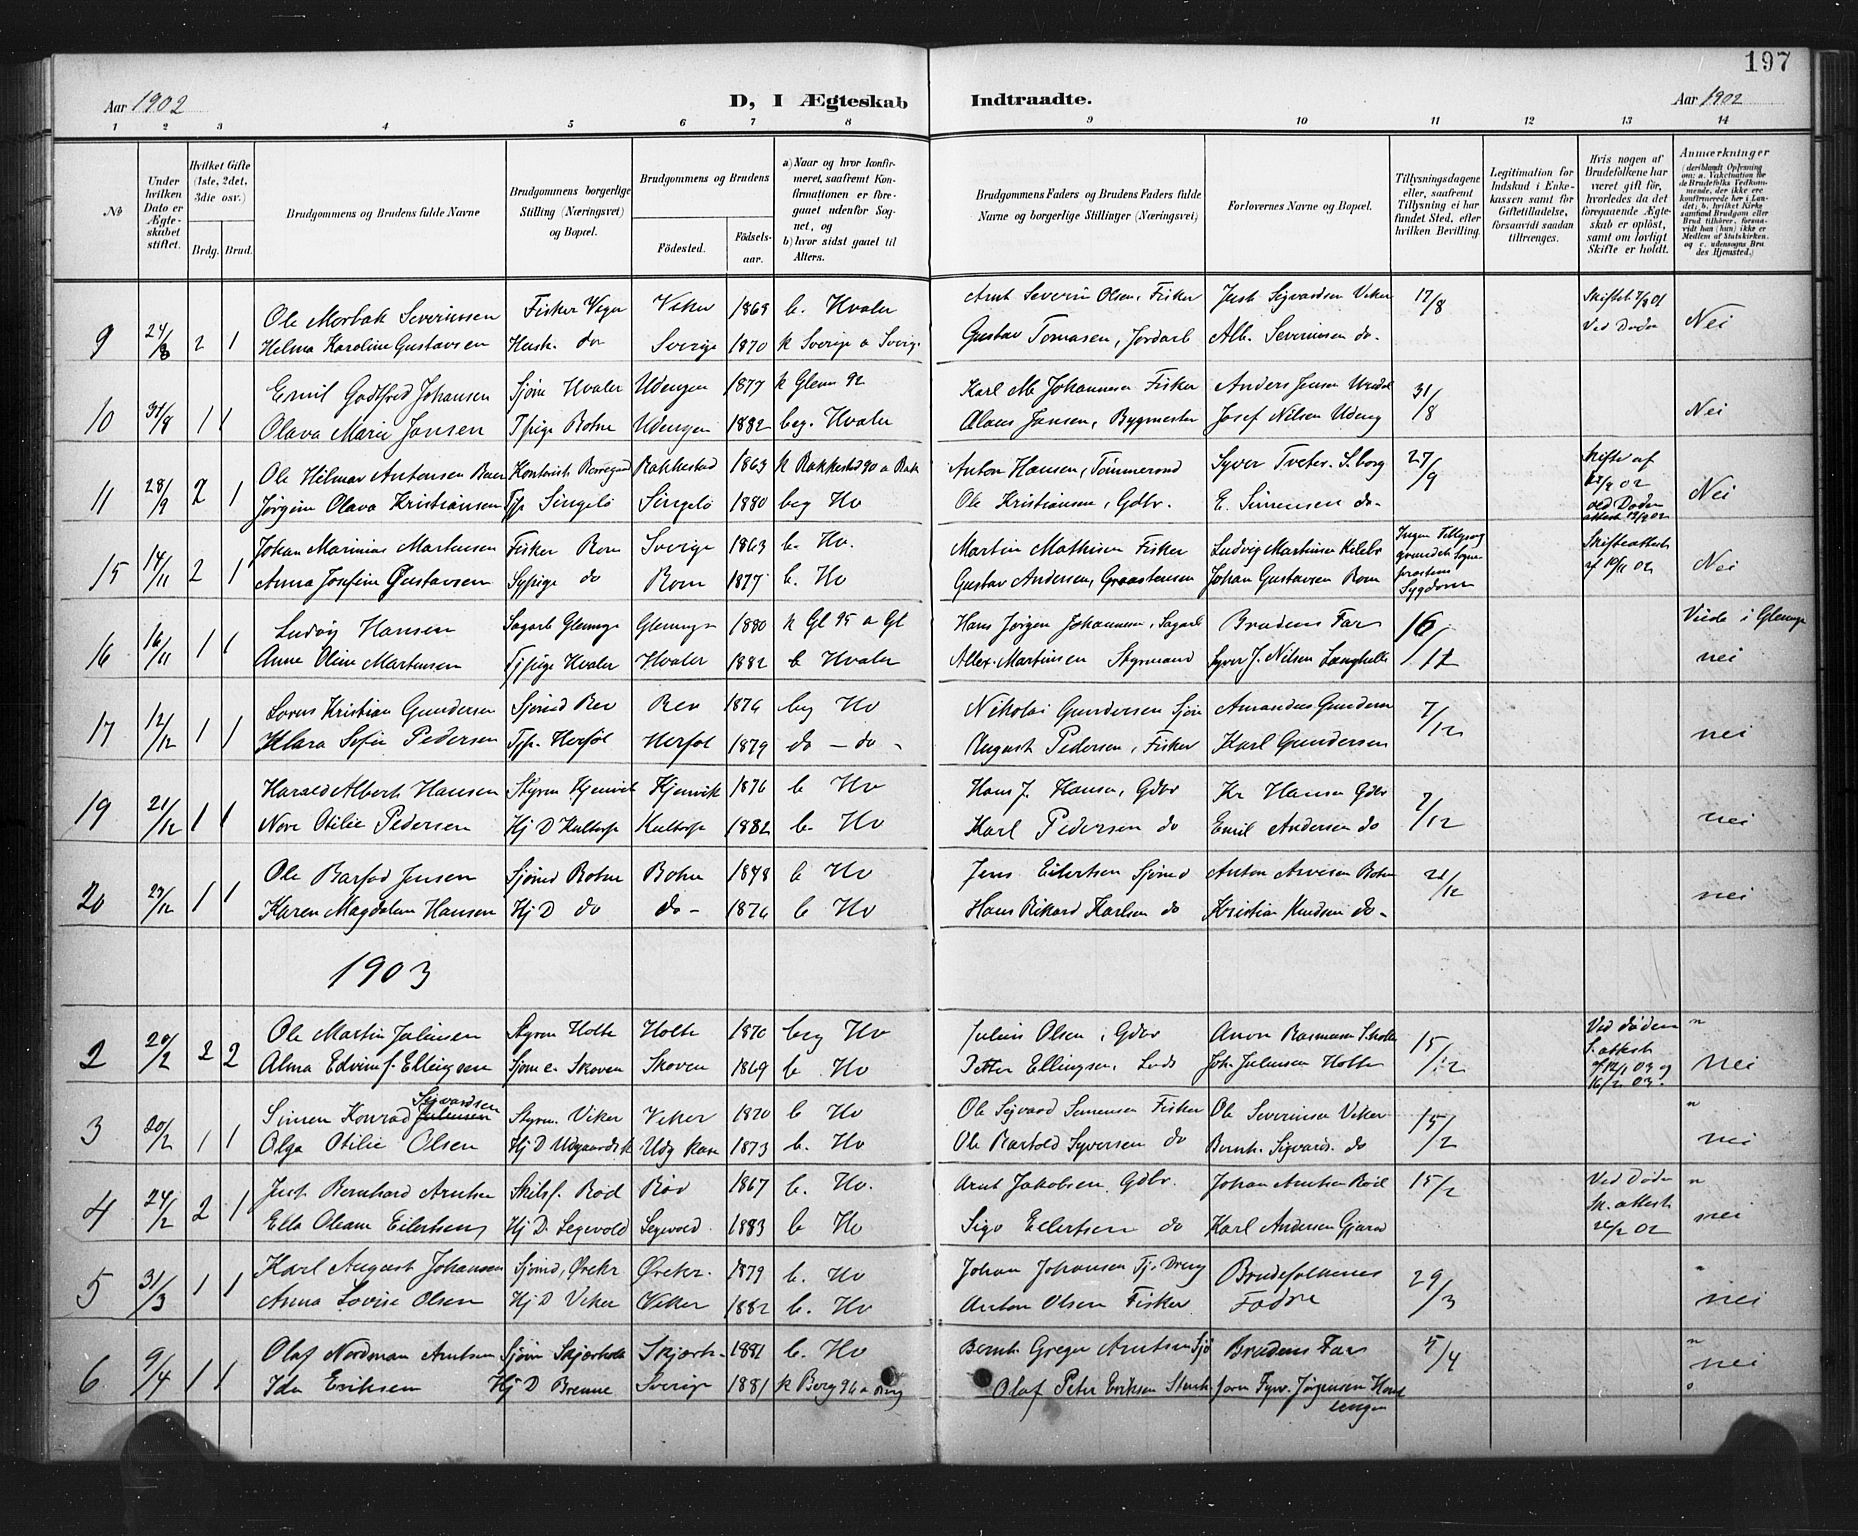 197
Aar 1902 D, I Ægteskab Indtraadte. Aar 1902
1 2 3 4 5 6 7 8 9 10 11 12 13 14
No
Under hvilken Dato er Ægteskabet stiftet.
Hvilket Gifte (1ste, 2det, 3die osv.)
Brdg. Brud.
Brudgommens og Brudens fulde Navne
Brudgommens borgerlige Stilling (Næringsvei) og Bopæl.
Brudgommens og Brudens
Fødested.
Fødsels-aar.
a) Naar og hvor konfirmeret, saafremt Konfirmationen er foregaaet udenfor Sognet, og
b) hvor sidst gaaet til Alters.
Brudgommens Faders og Brudens Faders fulde Navne og borgerlige Stillinger (Næringsvei)
Forlovernes Navne og Bopæl.
Tillysningsdagene eller, saafremt Tillysning ei har fundet Sted, efter hvilken Bevilling.
Legitimation for Indskud i Enkekassen samt for Giftetilladelse, forsaavidt saadan tiltrænges.
Hvis nogen af Brudefolkene har været gift før, hvorledes da det foregaaende Ægteskab er opløst, samt om lovligt Skifte er holdt.
Anmærkninger
(deriblandt Oplysning om: a. Vakcination for de Brudefolks Vedkommende, der ikke ere konfirmerede her i Landet; b. hvilket Kirkesamfund Brudgom eller Brud tilhører, forsaavidt han (hun) ikke er Medlem af Statskirken, og c. udensogns Brudes Hjemsted.)
Ole Morbak Severinsen Fisker Viker 1869 b. Hvaler Arnt Severin Olsen, Fisker Just Sigvardsen Viker 17/8
9 24/8 2 1 Helma Karoline Gustavsen Hush. do Sverige 1870 k Sverige a Gustav Tomasen, Jordarb Alb. Severinsen do. Ved Døden Nei
Emil Godtfred Johansen Sjøm Hvaler Udengen 1877 k Glem 92 Karl M Johannesen Fisker Anders Jensen
10 31/8 1 1 Olava Marie Jansen Tjpige Botne Udengen 1882 beg. Hvaler Olaus Jansen, Bygmester Josef Nilsen Udeng 31/8 Nei
Ole Hilmar Antonsen Kontorist Borregaard Rakkestad 1863 k Rakkestad 90 a Rak Anton Hansen, Tømmermd Syver Tveter. S.borg 27/9 Skifte af
11 28/9 2 1 Jørgine Olava Kristiansen Tjp Singelø Singelø 1880 beg Hv Ole Kristiansen, Gdbr. E. Simensen do. ved Døden Nei
Johan Marinius Martinsen Fisker Rom Sverige 1863 b. Hv. Martin Mathisen Fisker Ludvig Martinsen Ingen Tillysng Skifteattest
15 14/11 2 1 Anna Josefine Gustavsen Sypige do Rom 1877 b. Hv Gustav Andersen, Graastensm Johan Gustavsen Rom Sygdom af 10/11 02 Nei
Ludvig Hansen Sagarb Glemmge Glemmge 1880 k Gl 95 a Gl Hans Jørgen Johannesen, Sagarb Brudens Far 16/11 Viede i Glemge
16 16/11 1 1 Anne Oline Martinsen Tjpige Hvaler Hvaler 1882 b Hvaler Alex. Martinsen Styrmand Syver J. Nilsen nei
Lovis Kristian Gundersen Sjømd Rev Rev 1876 beg Hv Nikolai Gundersen Sjøm Amandus Gundersen 7/12
17 12/12 1 1 Klara Sofie Pedersen Tjp. Herføl Herføl 1879 do - do - August Pedersen, Fisker Karl Gundersen nei
Harald Albert Hansen Styrm Kjenvik Kjenvik 1876 b Hv Hans J. Hansen, Gdbr Kr Hansen Gdbr 7/12
19 21/12 1 1 Nora Otilie Pedersen Hj D Kultorp Kultorp 1882 b. Hv Karl Pedersen do Emil Andersen do nei
Ole Barfod Jensen Sjømd Botne Botne 1878 b Hv Jens Eilertsen Sjømd Anton Arvesen Botne 21/12
20 27/12 1 1 Karen Magdalene Hansen Hj D do do - 1876 b Hv Hans Rikard Karlsen do Kristian Knudsen do - nei
1903
Ole Martin Juliusen Styrm Holte Holte 1870 beg Hv Julius Olsen, Gdbr Anon Rasmussen 15/2 Ved døden "
2 20/2 2 2 Alma Edvine f. Ellingsen Sjøm e. Skoven Skoven 1869 b. Hv Petter Ellingsen, Lods Joh. Juliussen Holte S. attest af 12/1 03 og 16/2 03. nei
Simen Konrad Juliusen Sigvardsen Styrm. Viker Viker 1870 b Hv Ole Sigvard Simensen Fisker Ole Severinsen Viker 15/2 "
3 20/2 1 1 Olga Otilie Olsen Hj D Udgaardsk Udg kase 1873 b. Hv Ole Bartold Syversen do Bernh. Sigvards. do nei
Just Bernhard Arntsen Skibsf. Rød Rød 1867 b. Hv. Arnt Jakobsen Gdbr. Johan Arntsen Rød 15/2 Ved Døden "
4 24/2 2 1 Ella Oleane Eilertsen Hj D. Segevold Segevold 1883 b Hv Sigv Eilertsen do Karl Andersen Sk. attest nei
Karl August Johansen Sjømd, Ørekr Ørekr. 1879 b. Hv Johan Johansen Brudefolkenes 29/3 "
5 31/3 1 1 Anna Lovise Olsen Hj D Viker Viker 1882 b. Hv Anton Olsen Fisker Fædre nei
Olaf Nordman Arntsen Sjøm Skjærholt Skjærh. 1881 b. Hv Bernh. Greger Arntsen Sjø Brudens Far 5/4 "
6 9/4 1 1 Ida Eriksen Hj D Brenne Sverige 1881 k Berg 96 a Berg Olaf Peter Eriksen Stenh. Jørgensen nei